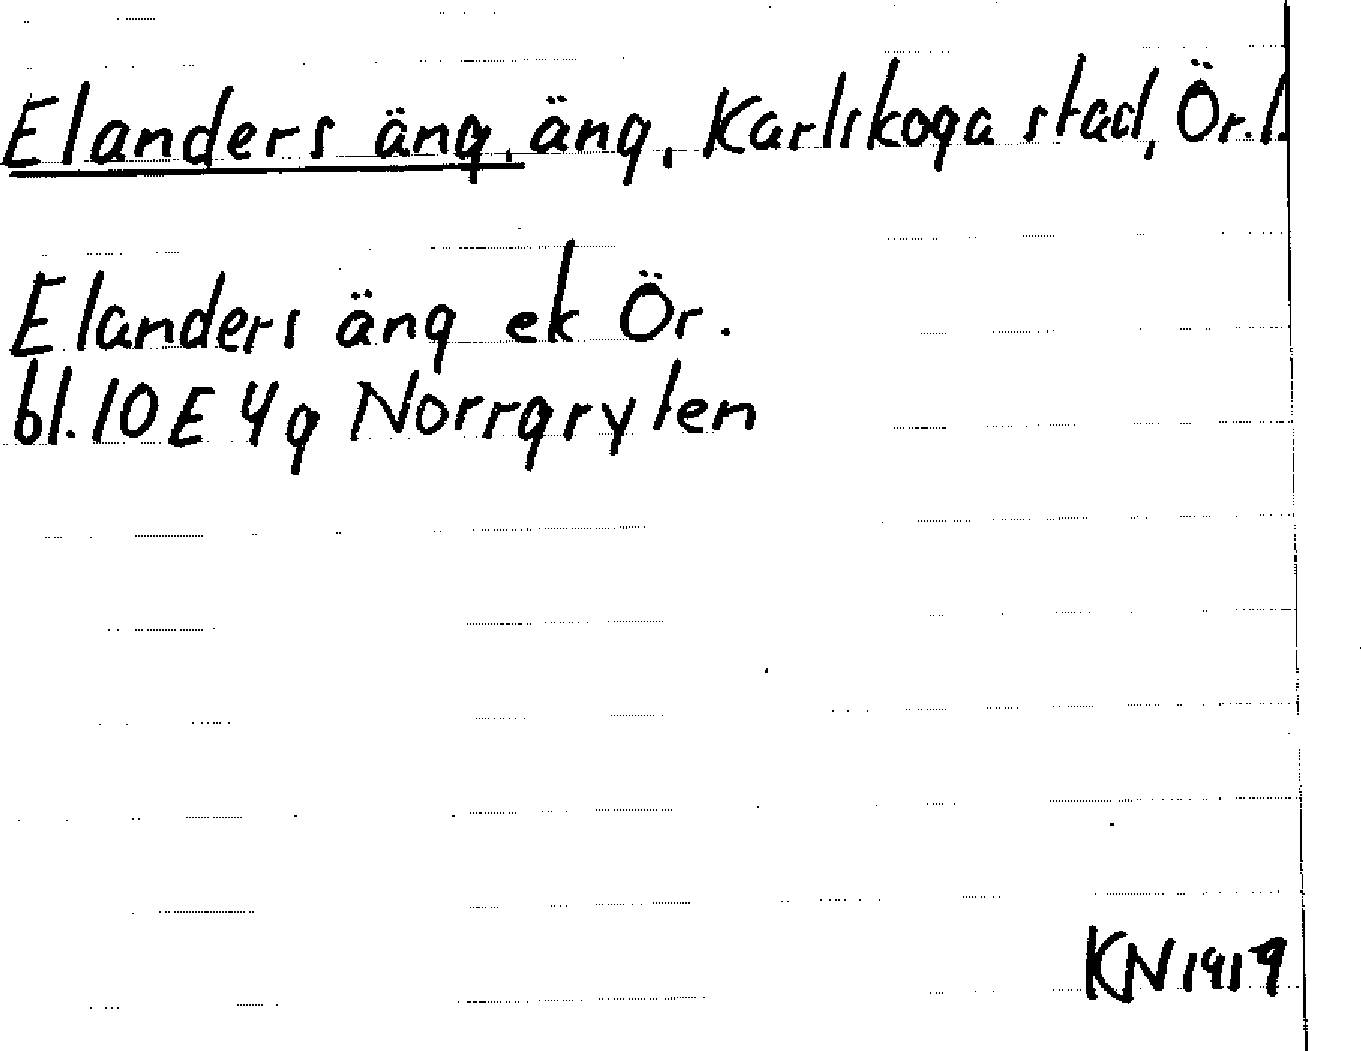 Elanders äng, äng, Karlskoga stad, Ör.l.
Elanders äng ek Ör.
bl. 10 E 4g Norrgryten
KN 1919